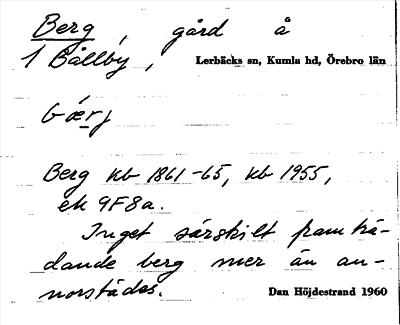 Berg, gård å
1 Bållby, Lerbäcks sn, Kumla hd, Örebro län
bærj
Berg kb 1861-65, kb 1955,
ek 9F8a.
Inget särskilt framträ-
dande berg mer än an-
norstädes. Dan Höjdestrand 1960